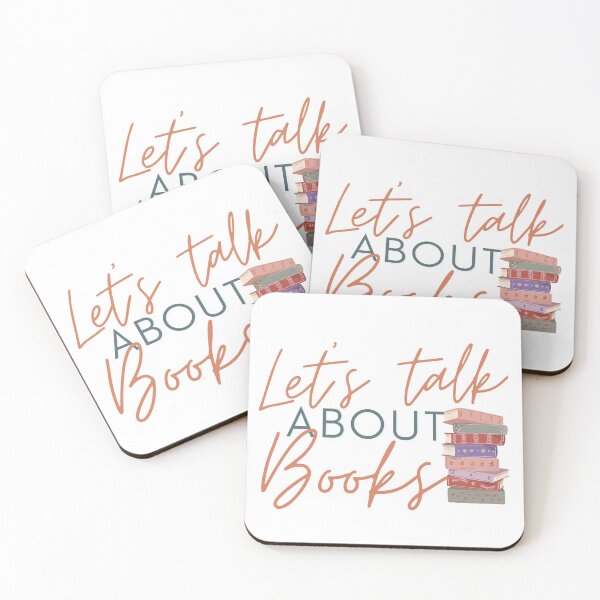 Let's talk
ABOUT
Let's talk
ABOUT
Books
Let's talk
ABOUT
Books
Let's talk
ABOUT
Books